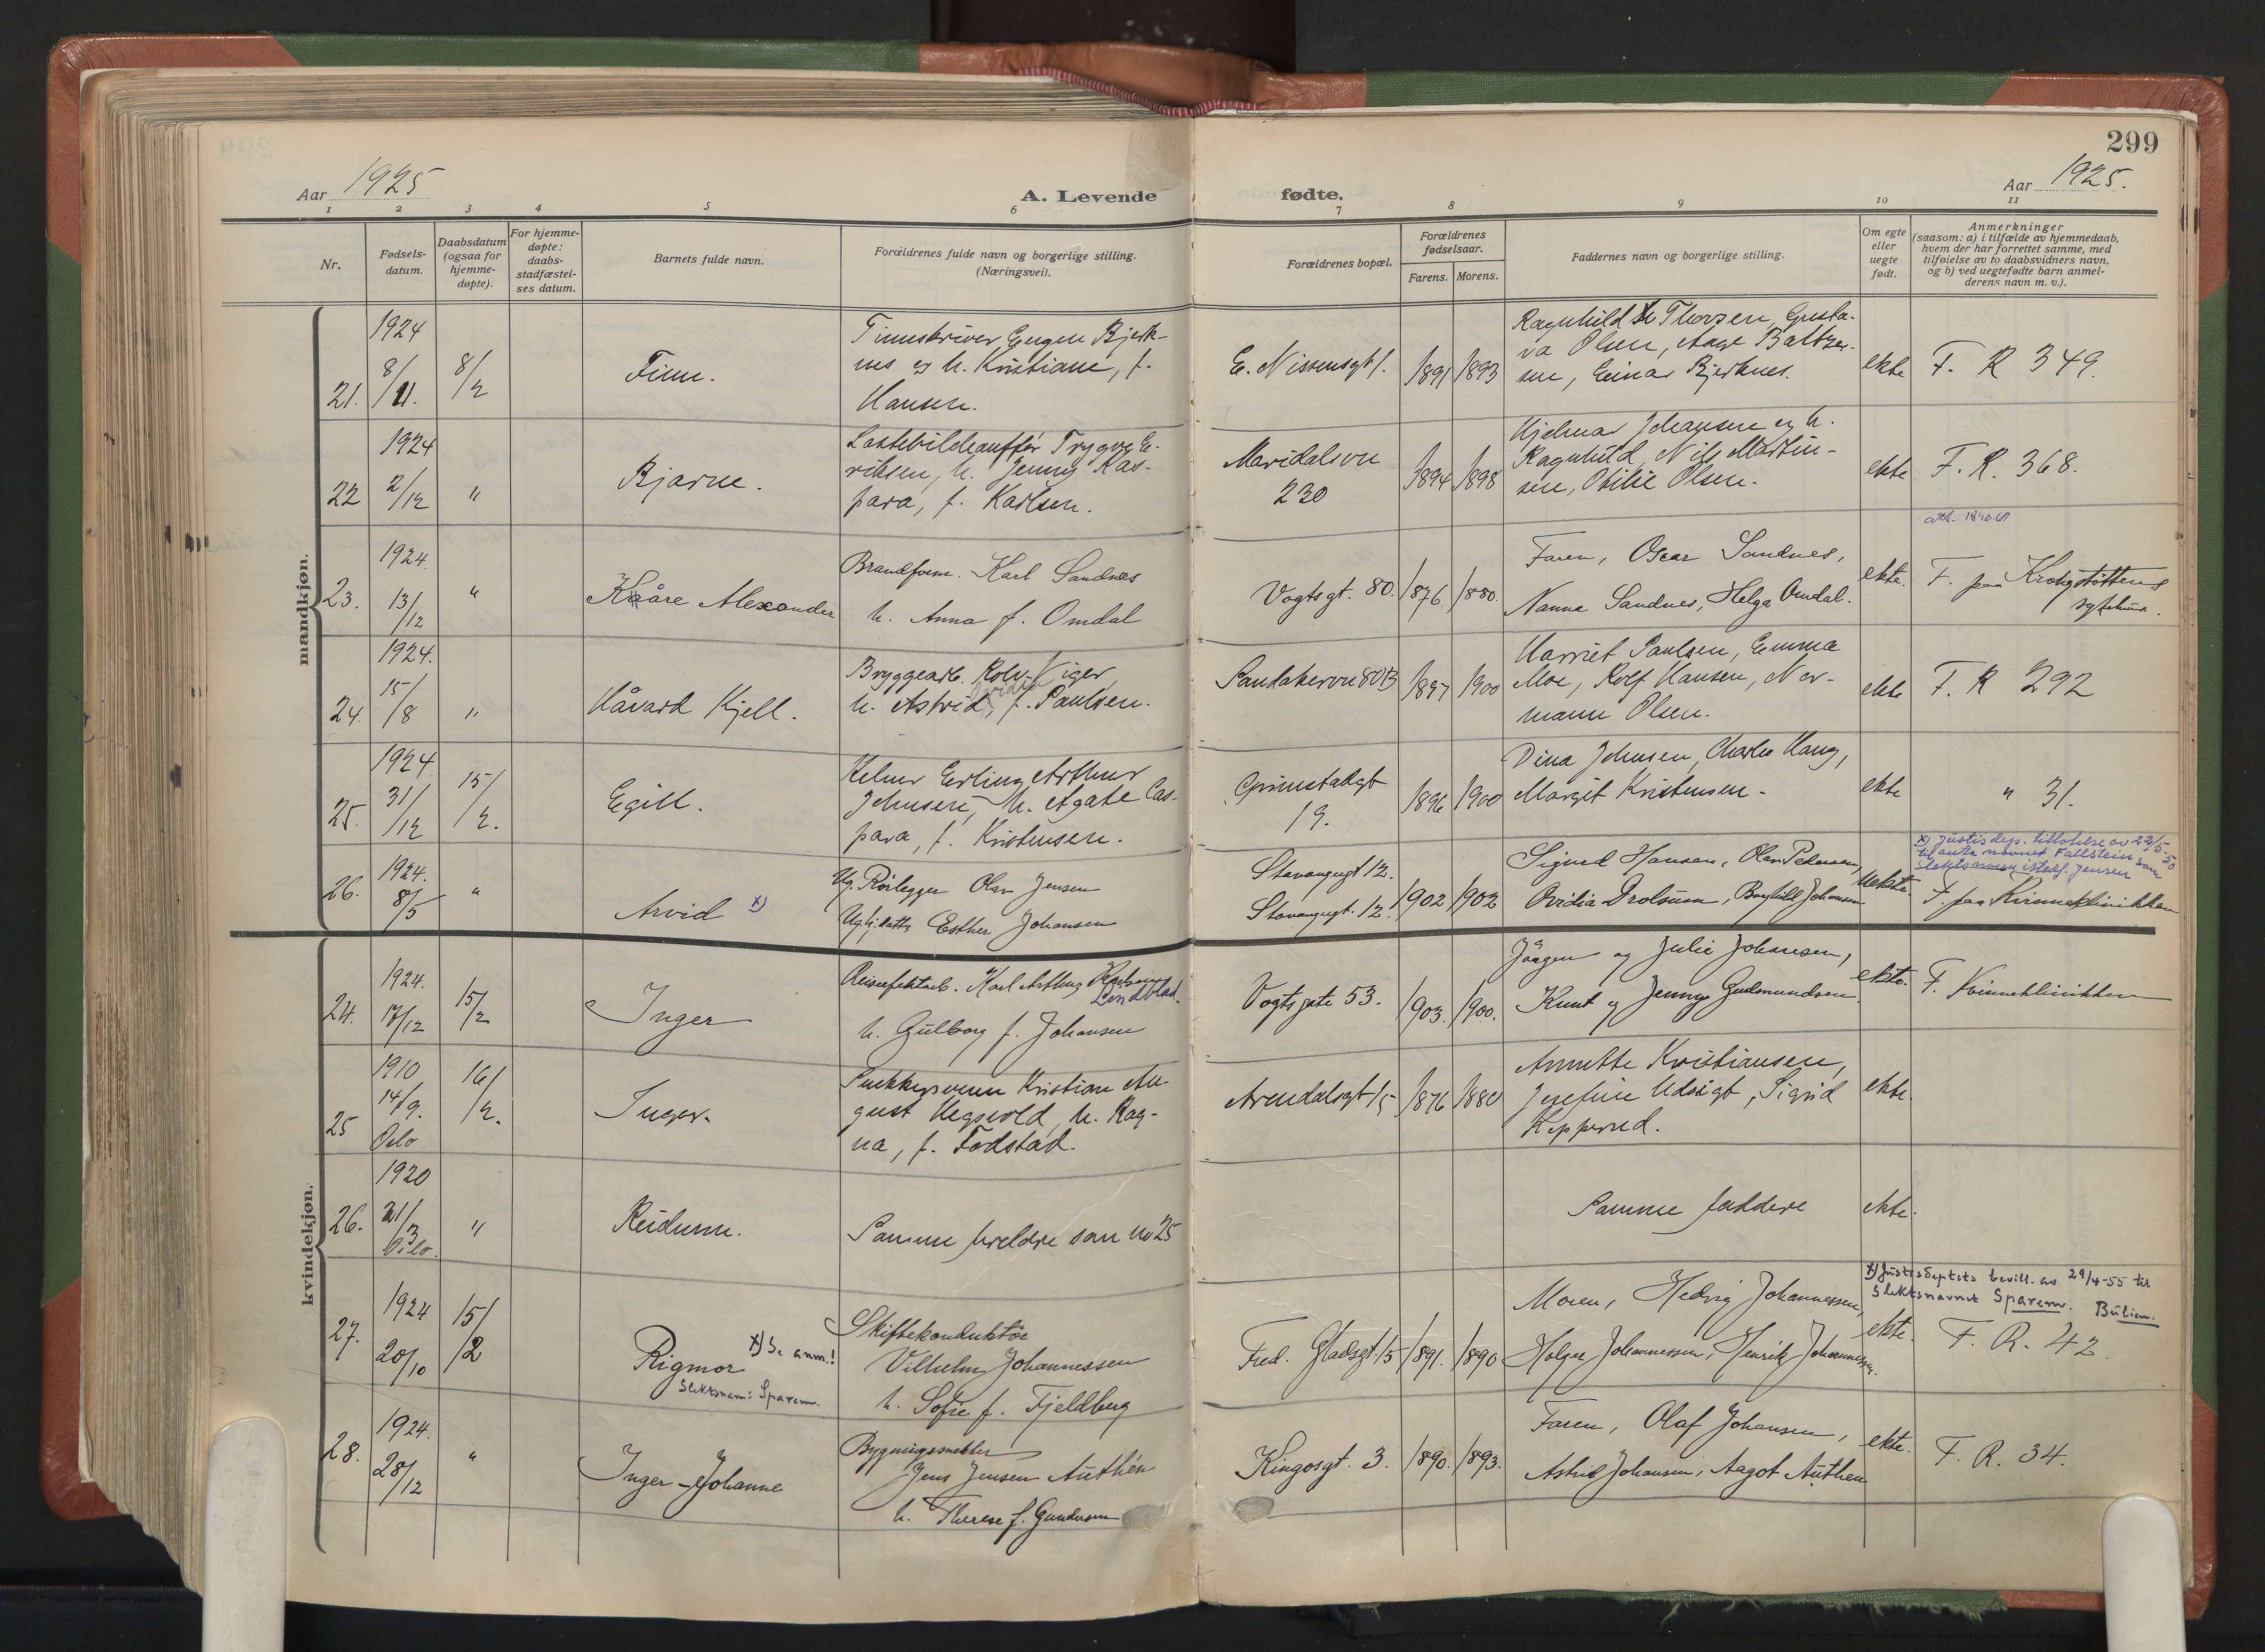 299
Aar 1925
A. Levende
fødte.
Aar 1925.
1 2 3 4 5 6 7 8 9 10 11
Nr.
Fødsels-
datum.
Daabsdatum
(ogsaa for
hjemme-
døpte).
For hjemme-
døpte:
daabs-
stadfæstel-
ses datum.
Barnets fulde navn.
Forældrenes fulde navn og borgerlige stilling.
(Næringsvei).
Forældrenes bopæl.
Forældrenes
fødselsaar.
Farens. Morens.
Faddernes navn og borgerlige stilling.
Om egte
eller
uegte
født.
Anmerkninger
(saasom: a) i tilfælde av hjemmedaab,
hvem der har forrettet samme, med
tilføielse av to daabsvidners navn,
og b) ved uegtefødte barn anmel-
derens navn m. v.).
mandkjøn.
21.
1924
8/11.
8/2
Finn.
Timeskriver Eugen Bjerk-
nes og h. Kristiane, f.
Hansen.
E. Nissensgt 1.
1891 1893
Ragnhild Thorsen, Gusta-
va Olsen, Aage Baltzer-
sen, Einar Bjerknes.
ekte
F. R 349.
22
1924
2/12
"
Bjarne.
Lastebilchauffør Trygve E-
riksen, h. Jenny Kas-
para, f. Karlsen.
Maridalsvn
230
1894 1898
Hjelmar Johansen og h.
Ragnhild, Nils Martin-
sen, Otilie Olsen.
ekte
F. R. 368.
23.
1924.
13/12
"
Kåre Alexander
Brandform. Karl Sandnes
h. Anna f. Omdal
Vogtsgt. 80.
1876. 1880.
Faren, Oscar Sandnes,
Nanna Sandnes, Helga Omdal.
ekte.
F. paa Krohgstøttens
sykehus.
24.
1924.
15/8
"
Håvard Kjell.
Bryggearb. Rolv Viger
h. Astrid, f. Paulsen.
Sandakervn 80B
1897 1900
Harriet Paulsen, Emma
Moe, Rolf Hansen, Nor-
mann Olsen.
ekte
F. R 292
25.
1924
31/12
15/2.
Egill.
Kelner Erling Arthur
Johnsen, h. Agate Cas-
para, f. Kristensen.
Grimstadgt
19.
1896 1900
Dina Johnsen, Charles Haug,
Margit Kristensen.
ekte
" 31.
26.
1924.
8/5
"
Arvid x)
Ug. Rørlegger Olav Jensen
Ug. hj. datter Esther Johansen
Stavangergt 12.
Stavangergt. 12.
1902 1902
Sigurd Hansen, Olav Pedersen,
Ovidia Drolsum, Borghild Johansen
Uekte.
x) Justisdep. tillatelse av 22/5-50
til anta navnet Fallstein som
Slektsnavn istedf. Jensen
F. paa Kvinneklinikken
kvindekjøn.
24.
1924.
17/12
15/2
Inger
Reiseefektarb. Karl Arthur Karlsen
Lindblad.
h. Gulborg f. Johansen
Vogtsgate 53.
1903. 1900.
Jørgen og Julie Johansen,
Knut og Jenny Gudmundsen.
ekte.
F. Kvinneklinikken
25
1910
14/9.
Oslo
16/2.
Inger.
Snekkersvenn Kristian Au-
gust Hegsvold, h. Rag-
na, f. Fodstad.
Arendalsgt 15
1876 1880
Annette Kristiansen,
Josefine Udsigt, Sigrid
Kopperud.
ekte.
26.
1920
21/3
Oslo.
"
Reidunn.
Samme foreldre som no 25
Samme faddere
ekte.
27.
1924
20/10
15/2
Rigmor x) Se anm.!
Slektsnavn: Sparem.
Skiftekonduktør
Vilhelm Johannessen
h. Sofie f. Fjeldberg
Fred. Gladsgt 15
1891. 1890
Moren, Hedvig Johannessen,
Holger Johannessen, Henrik Johannessen.
ekte.
x) Justisdeptets bevill. av 29/4-55 til
Slektsnavnet Sparem.
F. R. 42.
28.
1924.
28/12
"
Inger-Johanne
Bygningssnekker
Jens Jensen Authén
h. Therese f. Gundersen
Kingosgt. 3.
1890. 1893.
Faren, Olaf Johansen,
Astrid Johansen, Aagot Authen
ekte.
F. R. 34.